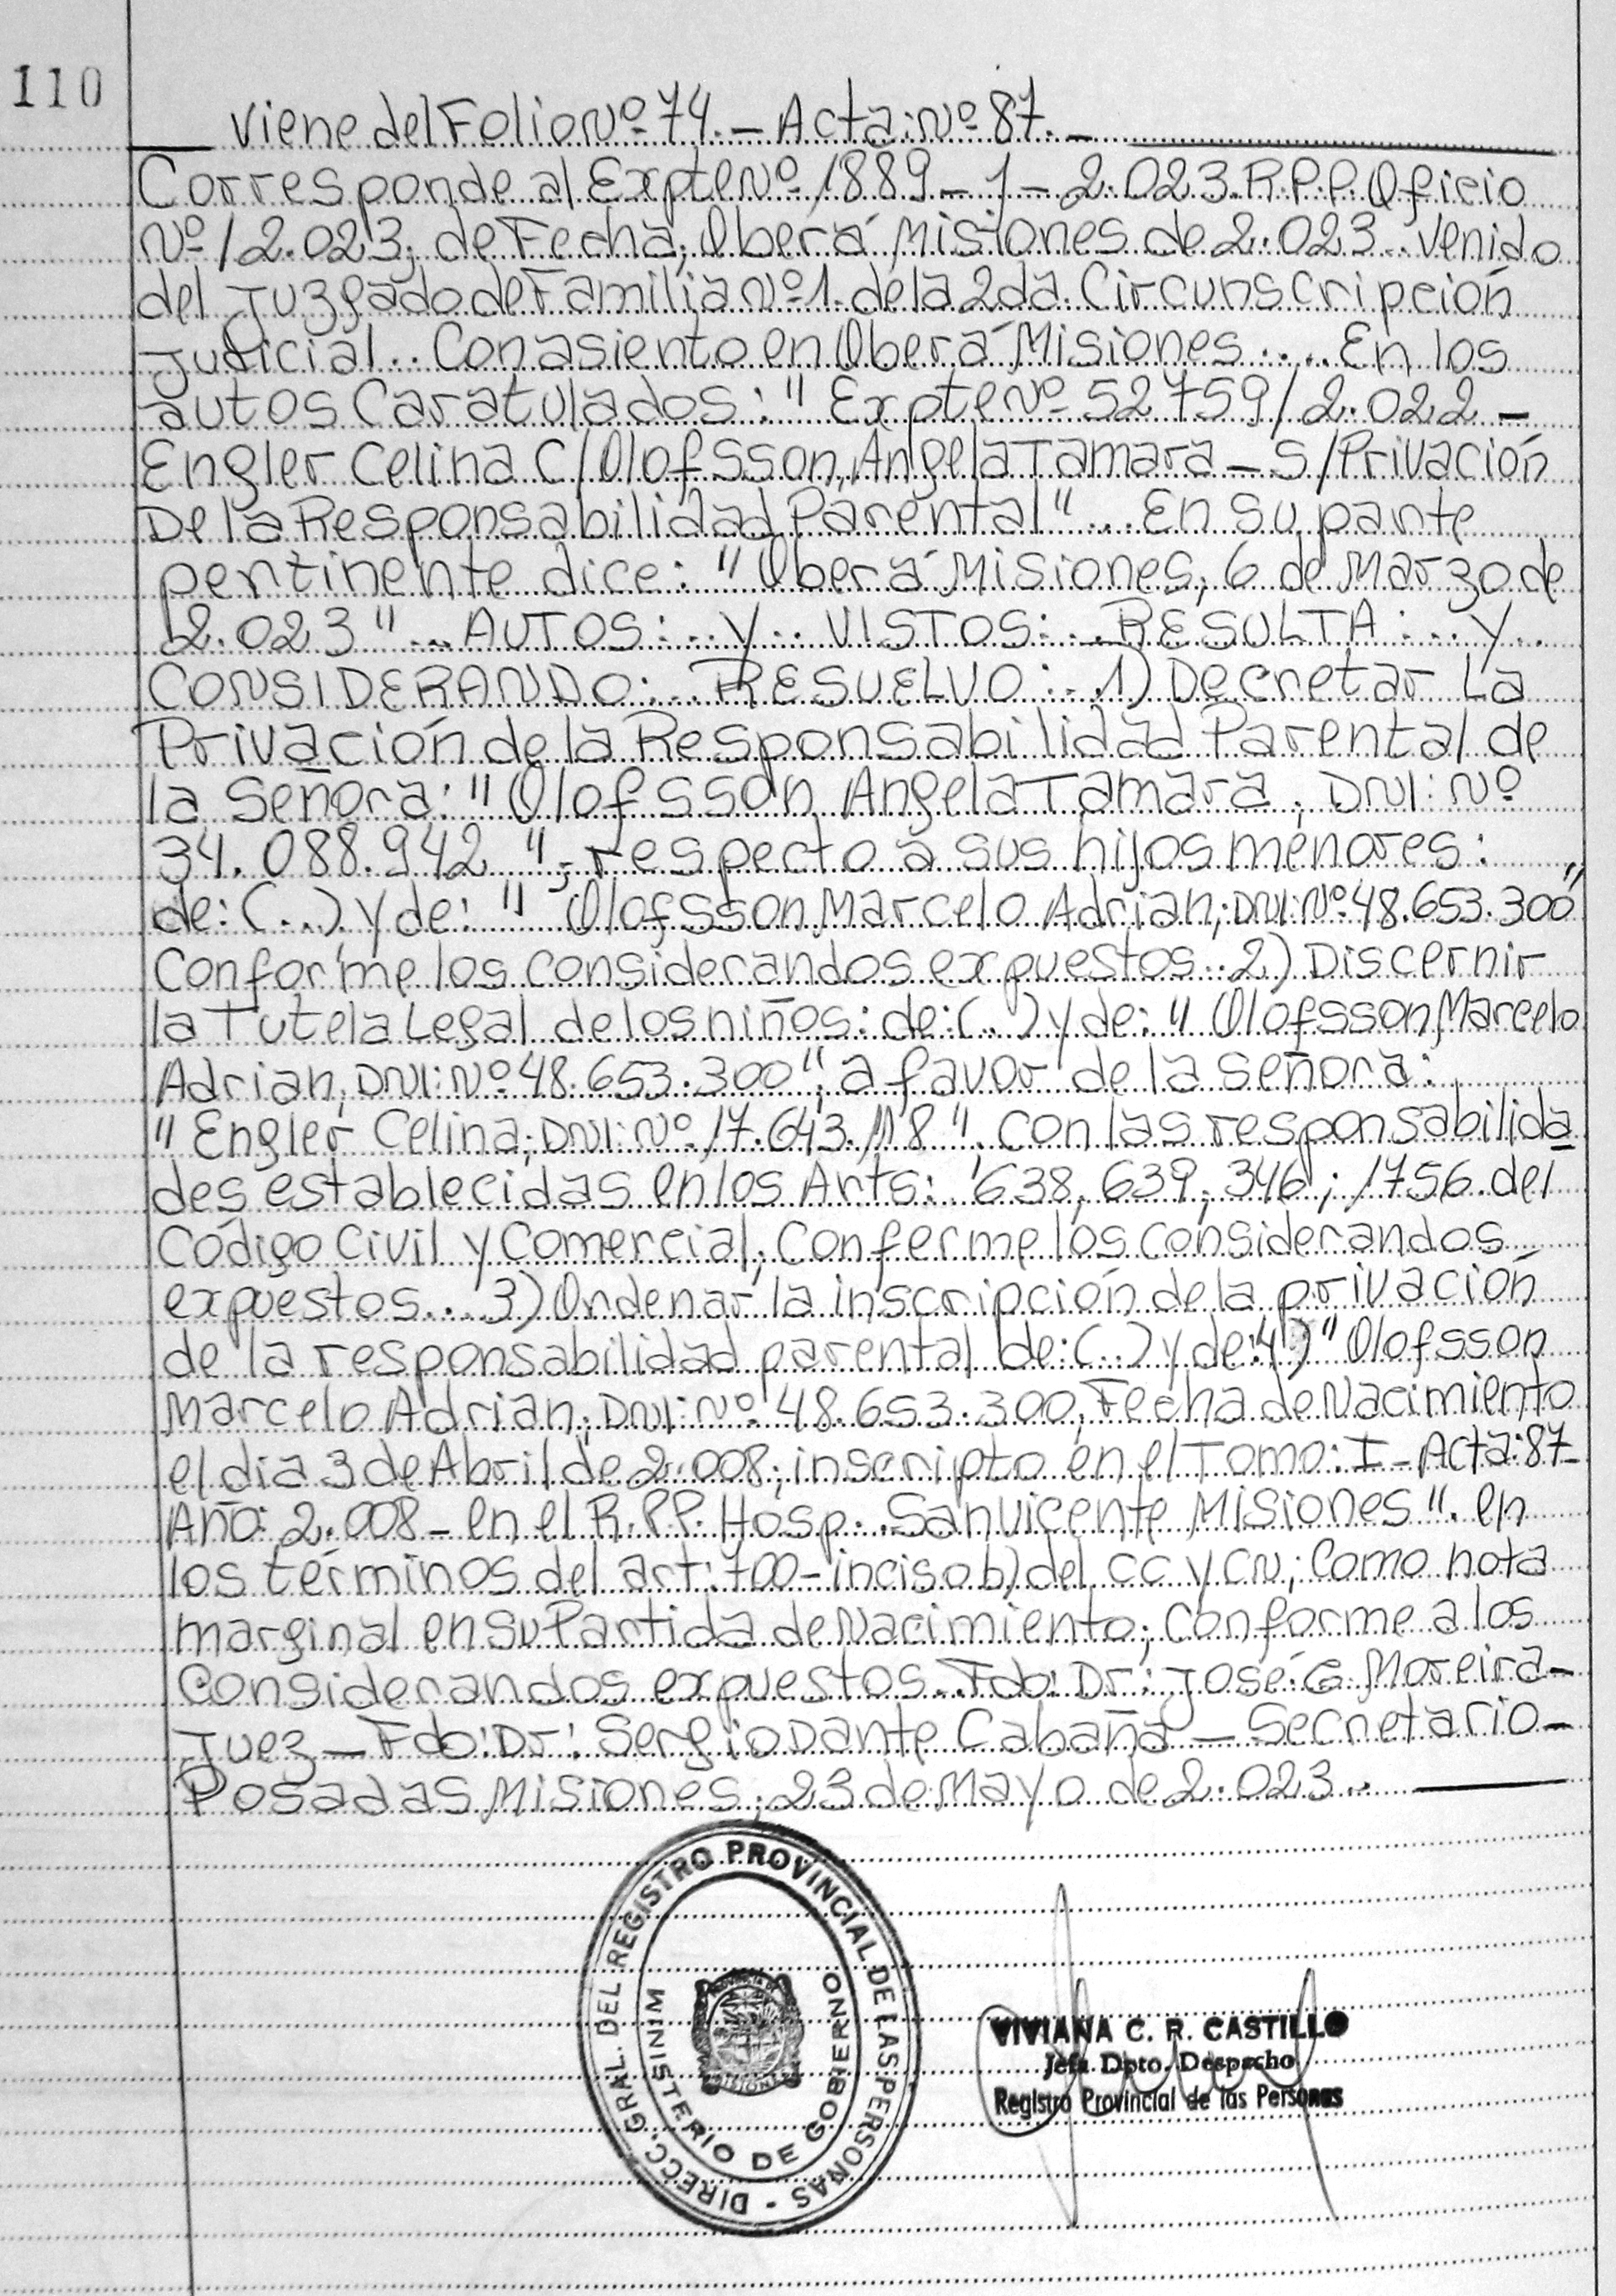 110
Viene del Folio Nº 74.- Acta: Nº 87.-
Corresponde al Expte Nº 1889-1-2.023.R.P.P. Oficio
Nº/2.023; de Fecha; Oberá Misiones de 2.023.. Venido
del Juzgado de Familia Nº 1. de la 2da. Circunscripción
Judicial.. Con asiento en Oberá Misiones.... En los
autos Caratulados: " Expte Nº 52759/2.022 -
Engler Celina C/Olofsson, Angela Tamara - S/Privación
De la Responsabilidad Parental"... En su parte
pertinente dice: "Oberá Misiones; 6 de Marzo de
2.023"... AUTOS:.. y.. VISTOS:.. RESULTA:... y..
CONSIDERANDO:.. RESUELVO:.. 1) Decretar La
Privación de la Responsabilidad Parental de
la Señora: " Olofsson Angela Tamara, DNI: Nº
34.088.942 "; respecto a sus hijos menores:
de: (...) y de: " Olofsson Marcelo Adrian; DNI: Nº 48.653.300"
Conforme los considerandos expuestos.. 2) Discernir
la Tutela Legal de los niños: de: (...) y de: " Olofsson Marcelo
Adrian; DNI: Nº 48.653.300"; a favor de la señora:
" Engler Celina; DNI: Nº 17.643.118 ". con las responsabilida
des establecidas en los Arts: 638, 639, 346; 1756. del
Código Civil y Comercial; Conferme los considerandos
expuestos... 3) Ordenar la inscripción de la privación
de la responsabilidad parental de: (...) y de: 4) " Olofsson
Marcelo Adrian; DNI: Nº 48.653.300; Fecha de Nacimiento
el dia 3 de Abril de 2.008; inscripto en el Tomo: I - Acta: 87-
Año: 2.008 - en el R.P.P. Hosp. San Vicente Misiones ". en
los términos del art: 700 - inciso b) del CC y CN; Como nota
marginal en su Partida de Nacimiento; Conforme a los
Considerandos expuestos.. Fdo: Dr: José G. Moreira-
Juez - Fdo: Dr: Sergio Dante Cabaña - Secretario-
Posadas Misiones; 23 de Mayo de 2.023..
DIRECC. GRAL. DEL REGISTRO PROVINCIAL DE LAS PERSONAS -
MINISTERIO DE GOBIERNO
VIVIANA C. R. CASTILLO
Jefa Dpto. Despacho
Registro Provincial de las Personas